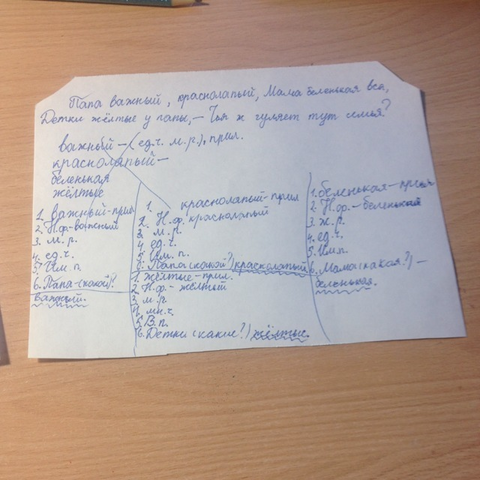 Папа важный, краснолапый, Мама беленькая вся,
Детки жёлтые у папы, – Чья ж гуляет тут семья?
важный – (ед.ч. м.р.), прил.
краснолапый –
беленькая
жёлтые
1. важный - прил
2. Н.ф - важный
3. м.р.
4. ед.ч.
5. Им.п.
6. Папа - (какой)?
важный.
1. краснолапый - прил
2. Н.ф. краснолапый
3. м.р.
4. ед.ч.
5. Им.п.
6. Папа (какой?) краснолапый
1. жёлтые - прил.
2. Н.ф - жёлтый
3. м.р
4. мн.ч.
5. В.п.
6. Детки (какие?) жёлтые.
1. беленькая - прил
2. Н.ф. - беленький
3. ж.р.
4. ед.ч.
5. Им.п.
6. Мама (какая?) –
беленькая.